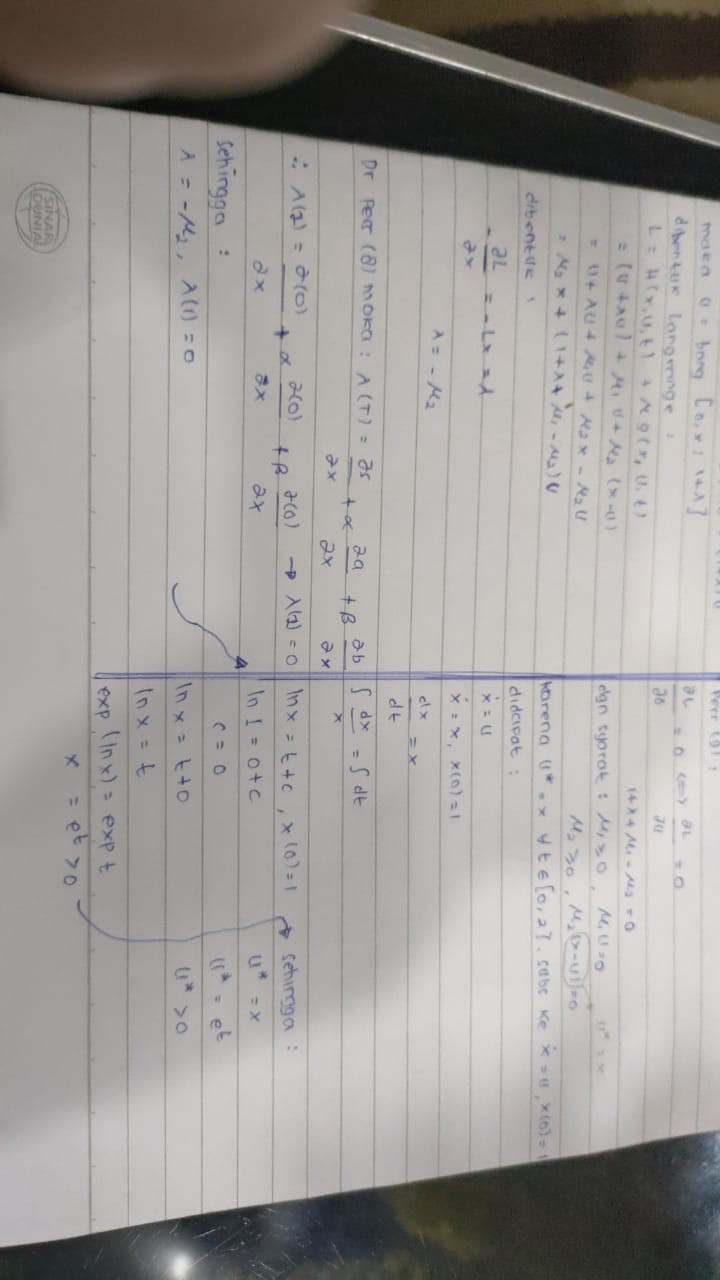 maka u = bang [0, x ; 1+λ]
dibentuk langrange :
L = H(x,u,t) + μ g(x,u,t)
= (u + λu) + μ₁ u + μ₂ (x-u)
= u + λu + μ₁u + μ₂x - μ₂u
= μ₂x + (1+λ+μ₁-μ₂)u
dibentuk :
-∂L/∂x = -Lx = λ
λ = -μ₂
Dr Pers (8) maka : λ(T) = ∂s/∂x + α ∂a/∂x + β ∂b/∂x
∴ λ(2) = ∂(0)/∂x + α ∂(0)/∂x + β ∂(0)/∂x → λ(2) = 0
Sehingga :
λ = -μ₂, λ(1) = 0
SINAR DUNIA
Pers (9) :
= 0 <=> ∂L/∂u = 0
1+λ+μ₁-μ₂ = 0
dgn syarat : μ₁ ≥ 0, μ₁u = 0
μ₂ ≥ 0, μ₂(x-u) = 0
u* = x
karena u* = x ∀ t ∈ [0,2]. subs ke ẋ = u, x(0) = 1
didapat :
ẋ = u
ẋ = x, x(0) = 1
dx/dt = x
∫ dx/x = ∫ dt
ln x = t + c, x(0) = 1
ln 1 = 0 + c
c = 0
ln x = t + 0
ln x = t
exp (ln x) = exp t
x = eᵗ > 0
sehingga :
u* = x
u* = eᵗ
u* > 0